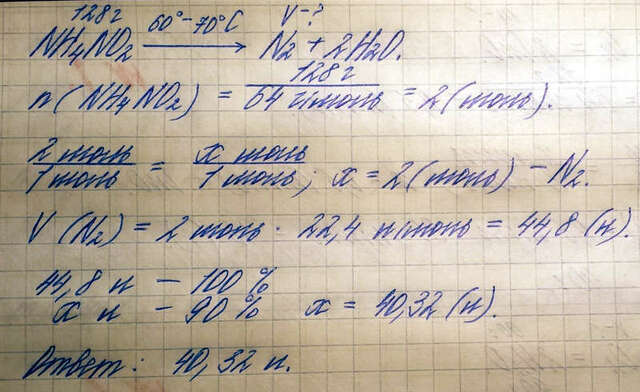 128 г 60°-70°C V-?
NH4NO2 → N2 + 2H2O.
n(NH4NO2) = 128 г / 64 г/моль = 2 (моль).
2 моль / 1 моль = x моль / 1 моль; x = 2 (моль) - N2.
V(N2) = 2 моль · 22,4 л/моль = 44,8 (л).
44,8 л - 100%
x л - 90% x = 40,32 (л).
Ответ: 40,32 л.